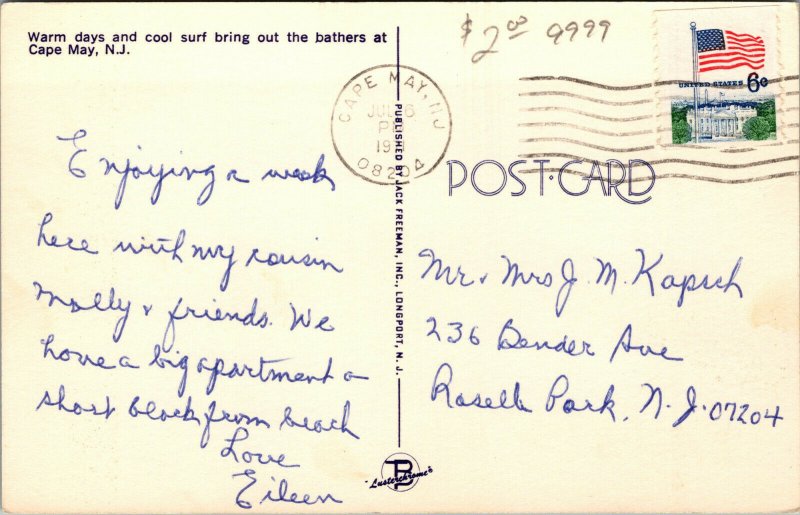 Warm days and cool surf bring out the bathers at
Cape May, N.J.
Enjoying a week
here with my cousin
Molly & friends. We
have a big apartment a
short block from beach
Love
Eileen
PUBLISHED BY JACK FREEMAN, INC., LONGPORT, N. J.
Lusterchrome's
$2.00 9999
CAPE MAY, NJ
JUL 6
PM
19
08204
UNITED STATES 6c
POST CARD
Mr & Mrs J. M. Kapsch
236 Bender Ave
Roselle Park, N.J. 07204